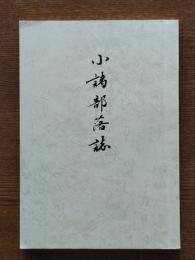 小諸部落誌